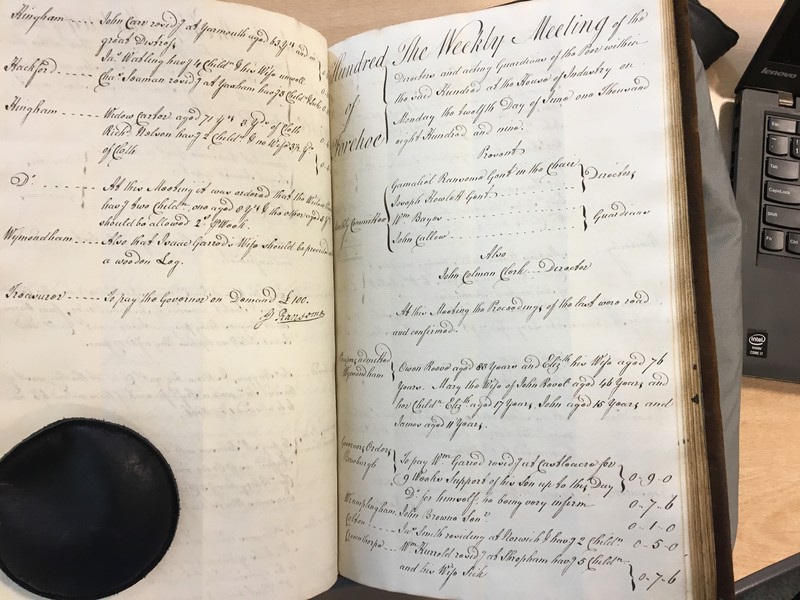 Hingham ---- John Carr resid.g at Yarmouth aged 63 Y.rs and in
great Distress
Hackford ---- Ja.s Watling hav.g 4 Child.n & his Wife unwell
Cha.s Seaman resid.g at Yaxham hav.g 3 Child.n
Hingham ---- Widow Carter aged 71 Y.rs 3 Y.ds of Cloth
Rich.d Nelson hav.g 2 Child.n & no Wife 3½ Y.ds
of Cloth
D.o ---- At this Meeting it was ordered that the Widow
hav.g two Child.n, one aged 8 Y.rs & the other aged
should be allowed 2.s P Week.
Wymondham ---- Also that Isaac Garrods Wife should be provided
a wooden Leg.
Treasurer ---- To pay the Governor on Demand £100.
G Ransome
Hundred
of
Forehoe
The Weekly Meeting of the
Directors and acting Guardians of the Poor within
the said Hundred at the House of Industry on
Monday the twelfth Day of June one Thousand
eight Hundred and nine.
Present
Weekly Committee
Gamaliel Ransome Gent in the Chair
Joseph Howlett Gent
Directors
W.m Bayes
John Callow
Guardians
Also
John Colman Clerk --- Director
At this Meeting the Proceedings of the last were read
and confirmed.
Persons admitted
Wymondham
Owen Reeve aged 88 Years and Eliz.th his Wife aged 76
Years. Mary the Wife of John Revel aged 46 Years and
her Child.n Eliz.th aged 17 Years, John aged 15 Years and
James aged 11 Years.
Governors Orders
To pay W.m Garrod resid.g at Castleacre for
9 Weeks Support of his Son up to this Day 0-9-0
D.o for himself, he being very infirm 0-7-6
Wramplingham John Browne Sen.r 0-1-0
Colton ---- Ja.s Smith residing at Norwich & hav.g 2 Child.n 0-5-0
Crownthorpe ---- W.m Hurrold resid.g at Shropham hav.g 5 Child.n
and his Wife Sick 0-7-6
lenovo
Esc
Tab
CapsLock
Shift
Fn
Ctrl
intel
inside
CORE i7